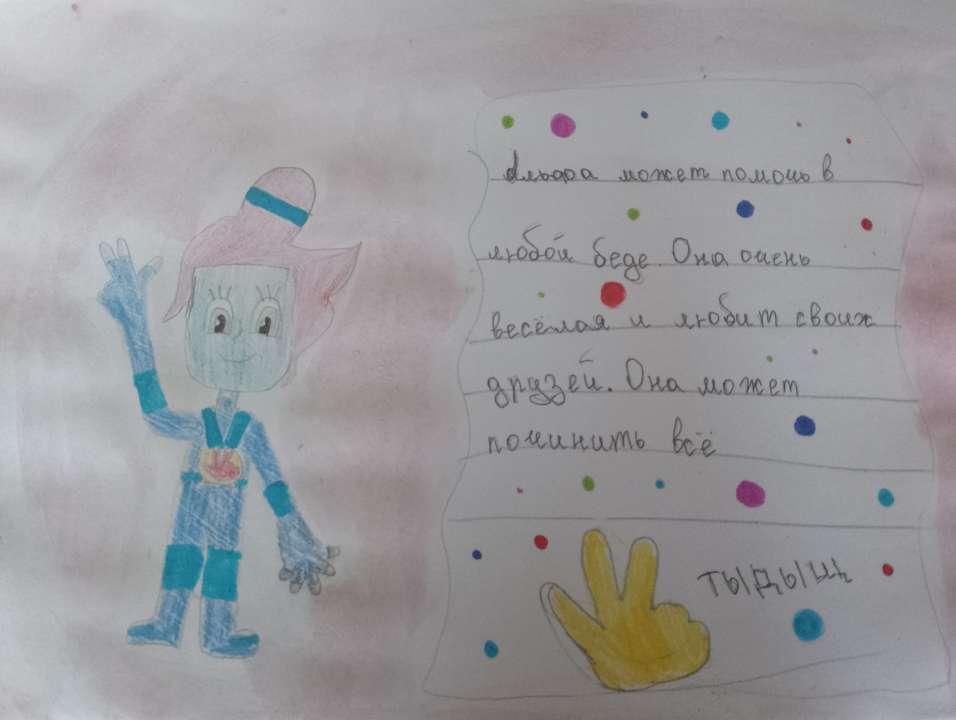 может помочь в
любой беде. Она очень
весёлая и любит своих
друзей. Она может
починить всё
тыдыщ